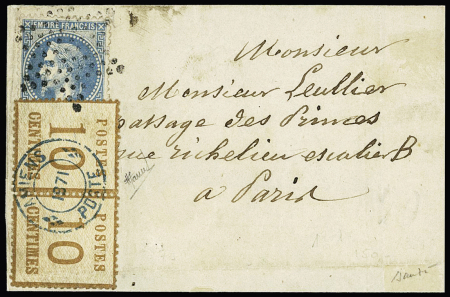 EMPIRE FRANÇAIS
Monsieur
Monsieur Leullier
passage des Princes
rue richelieu escalier B
a Paris
POSTES
10
CENTIMES
POSTES
10
CENTIMES
AMIENS
1871
POSTE